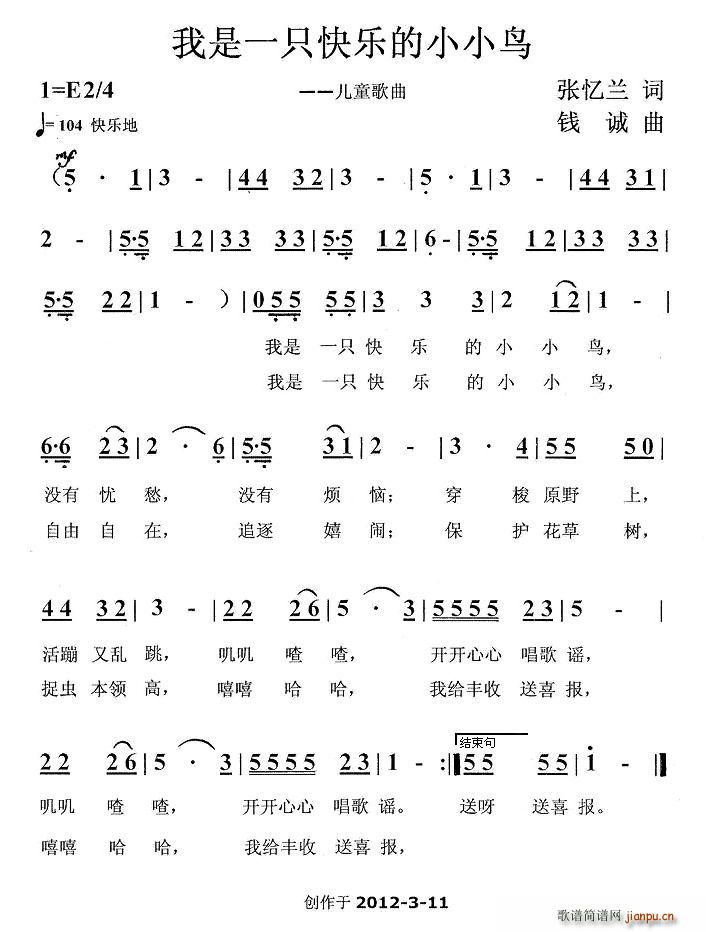 我是一只快乐的小小鸟
1=E2/4 ——儿童歌曲 张忆兰 词
♩= 104 快乐地 钱 诚 曲
mf
(5 · 1|3 - |44 32|3 - |5 · 1|3 - |44 33|
2 - |5·5 12|33 33|5·5 12|6 - |5·5 12|33 33|
5·5 22|1 - )|055 55|3 3 3|2 12|5 - |
我是 一只 快 乐 的 小 小 鸟,
我是 一只 快 乐 的 小 小 鸟,
6·6 23|2 · 6|5·5 31|2 - |3 · 4|55 50|
没有 忧 愁, 没有 烦 恼; 穿 梭 原野 上,
自由 自 在, 追逐 嬉 闹; 保 护 花草 树,
44 32|3 - |22 26|5 · 3|5555 23|5 - |
活蹦 又乱 跳, 叽叽 喳 喳, 开开心心 唱歌 谣,
捉虫 本领 高, 嘻嘻 哈 哈, 我给丰收 送喜 报,
结束句
22 26|5 · 3|5555 23|1 - :‖55 55|1 - ‖
叽叽 喳 喳, 开开心心 唱歌 谣。 送呀 送喜 报。
嘻嘻 哈 哈, 我给丰收 送喜 报,
创作于 2012-3-11
歌谱简谱网
jianpu.cn